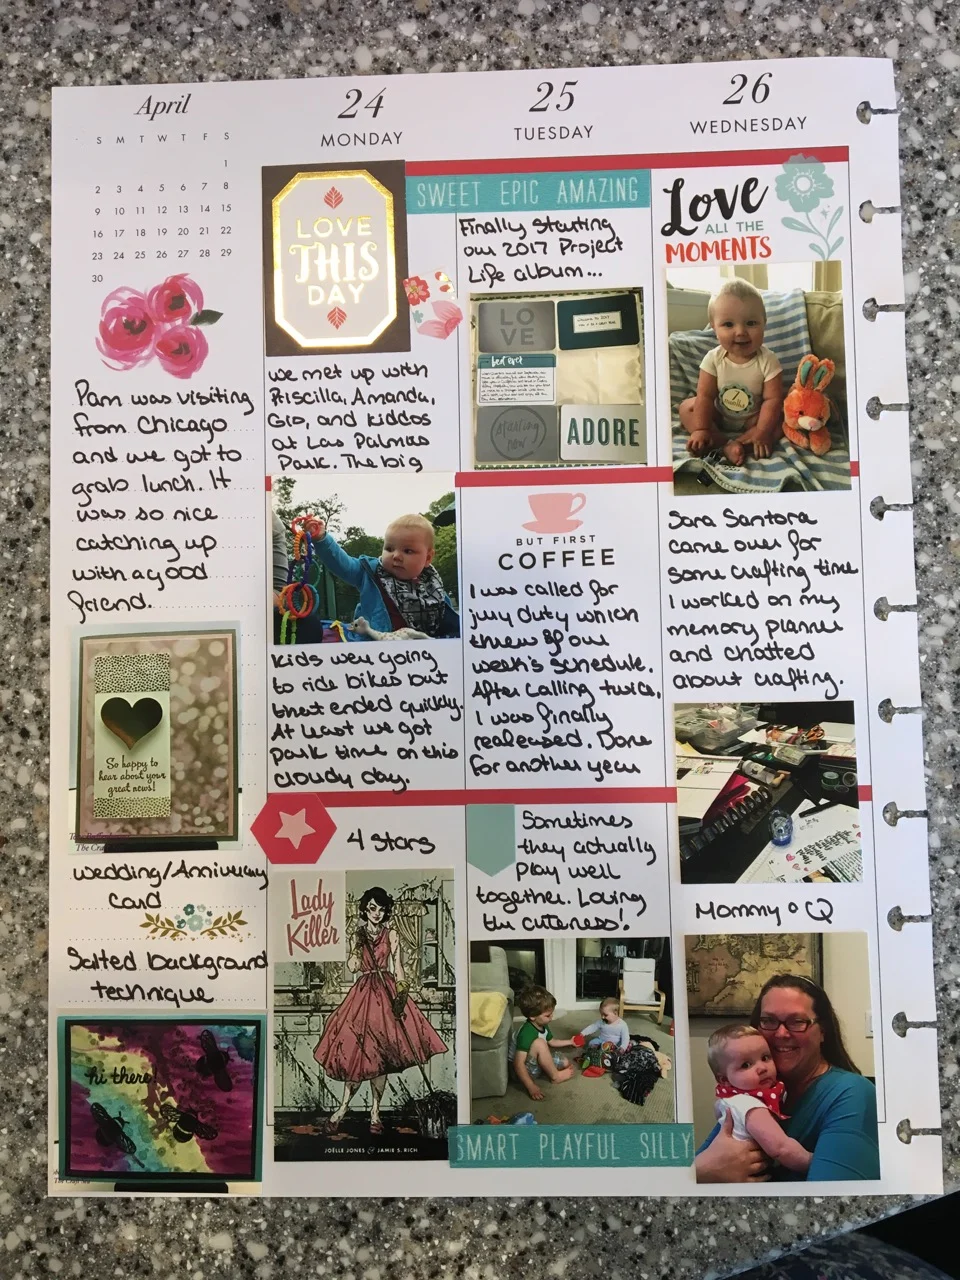 April
S M T W T F S
1
2 3 4 5 6 7 8
9 10 11 12 13 14 15
16 17 18 19 20 21 22
23 24 25 26 27 28 29
30
Pam was visiting
from Chicago
and we got to
grab lunch. It
was so nice
catching up
with a good
friend.
So happy to
hear about your
great news!
The Craft
Wedding/Anniversary
Card
Salted background
technique
hi there!
24
MONDAY
LOVE
THIS
DAY
we met up with
Priscilla, Amanda,
Gio, and kiddos
at Las Palmas
Park. The big
kids were going
to ride bikes but
that ended quickly.
At least we got
park time on this
cloudy day.
4 stars
Lady
Killer
JOËLLE JONES & JAMIE S. RICH
25
TUESDAY
SWEET EPIC AMAZING
Finally starting
our 2017 Project
Life album...
LO
VE
best ever
starting
now
ADORE
BUT FIRST
COFFEE
I was called for
jury duty which
threw off our
week's schedule.
After calling twice,
I was finally
realeased. Done
for another year
Sometimes
they actually
play well
together. Loving
the cuteness!
SMART PLAYFUL SILLY
26
WEDNESDAY
Love
ALL THE
MOMENTS
7
months
Sara Santora
came over for
some crafting time
I worked on my
memory planner
and chatted
about crafting.
Mommy & Q